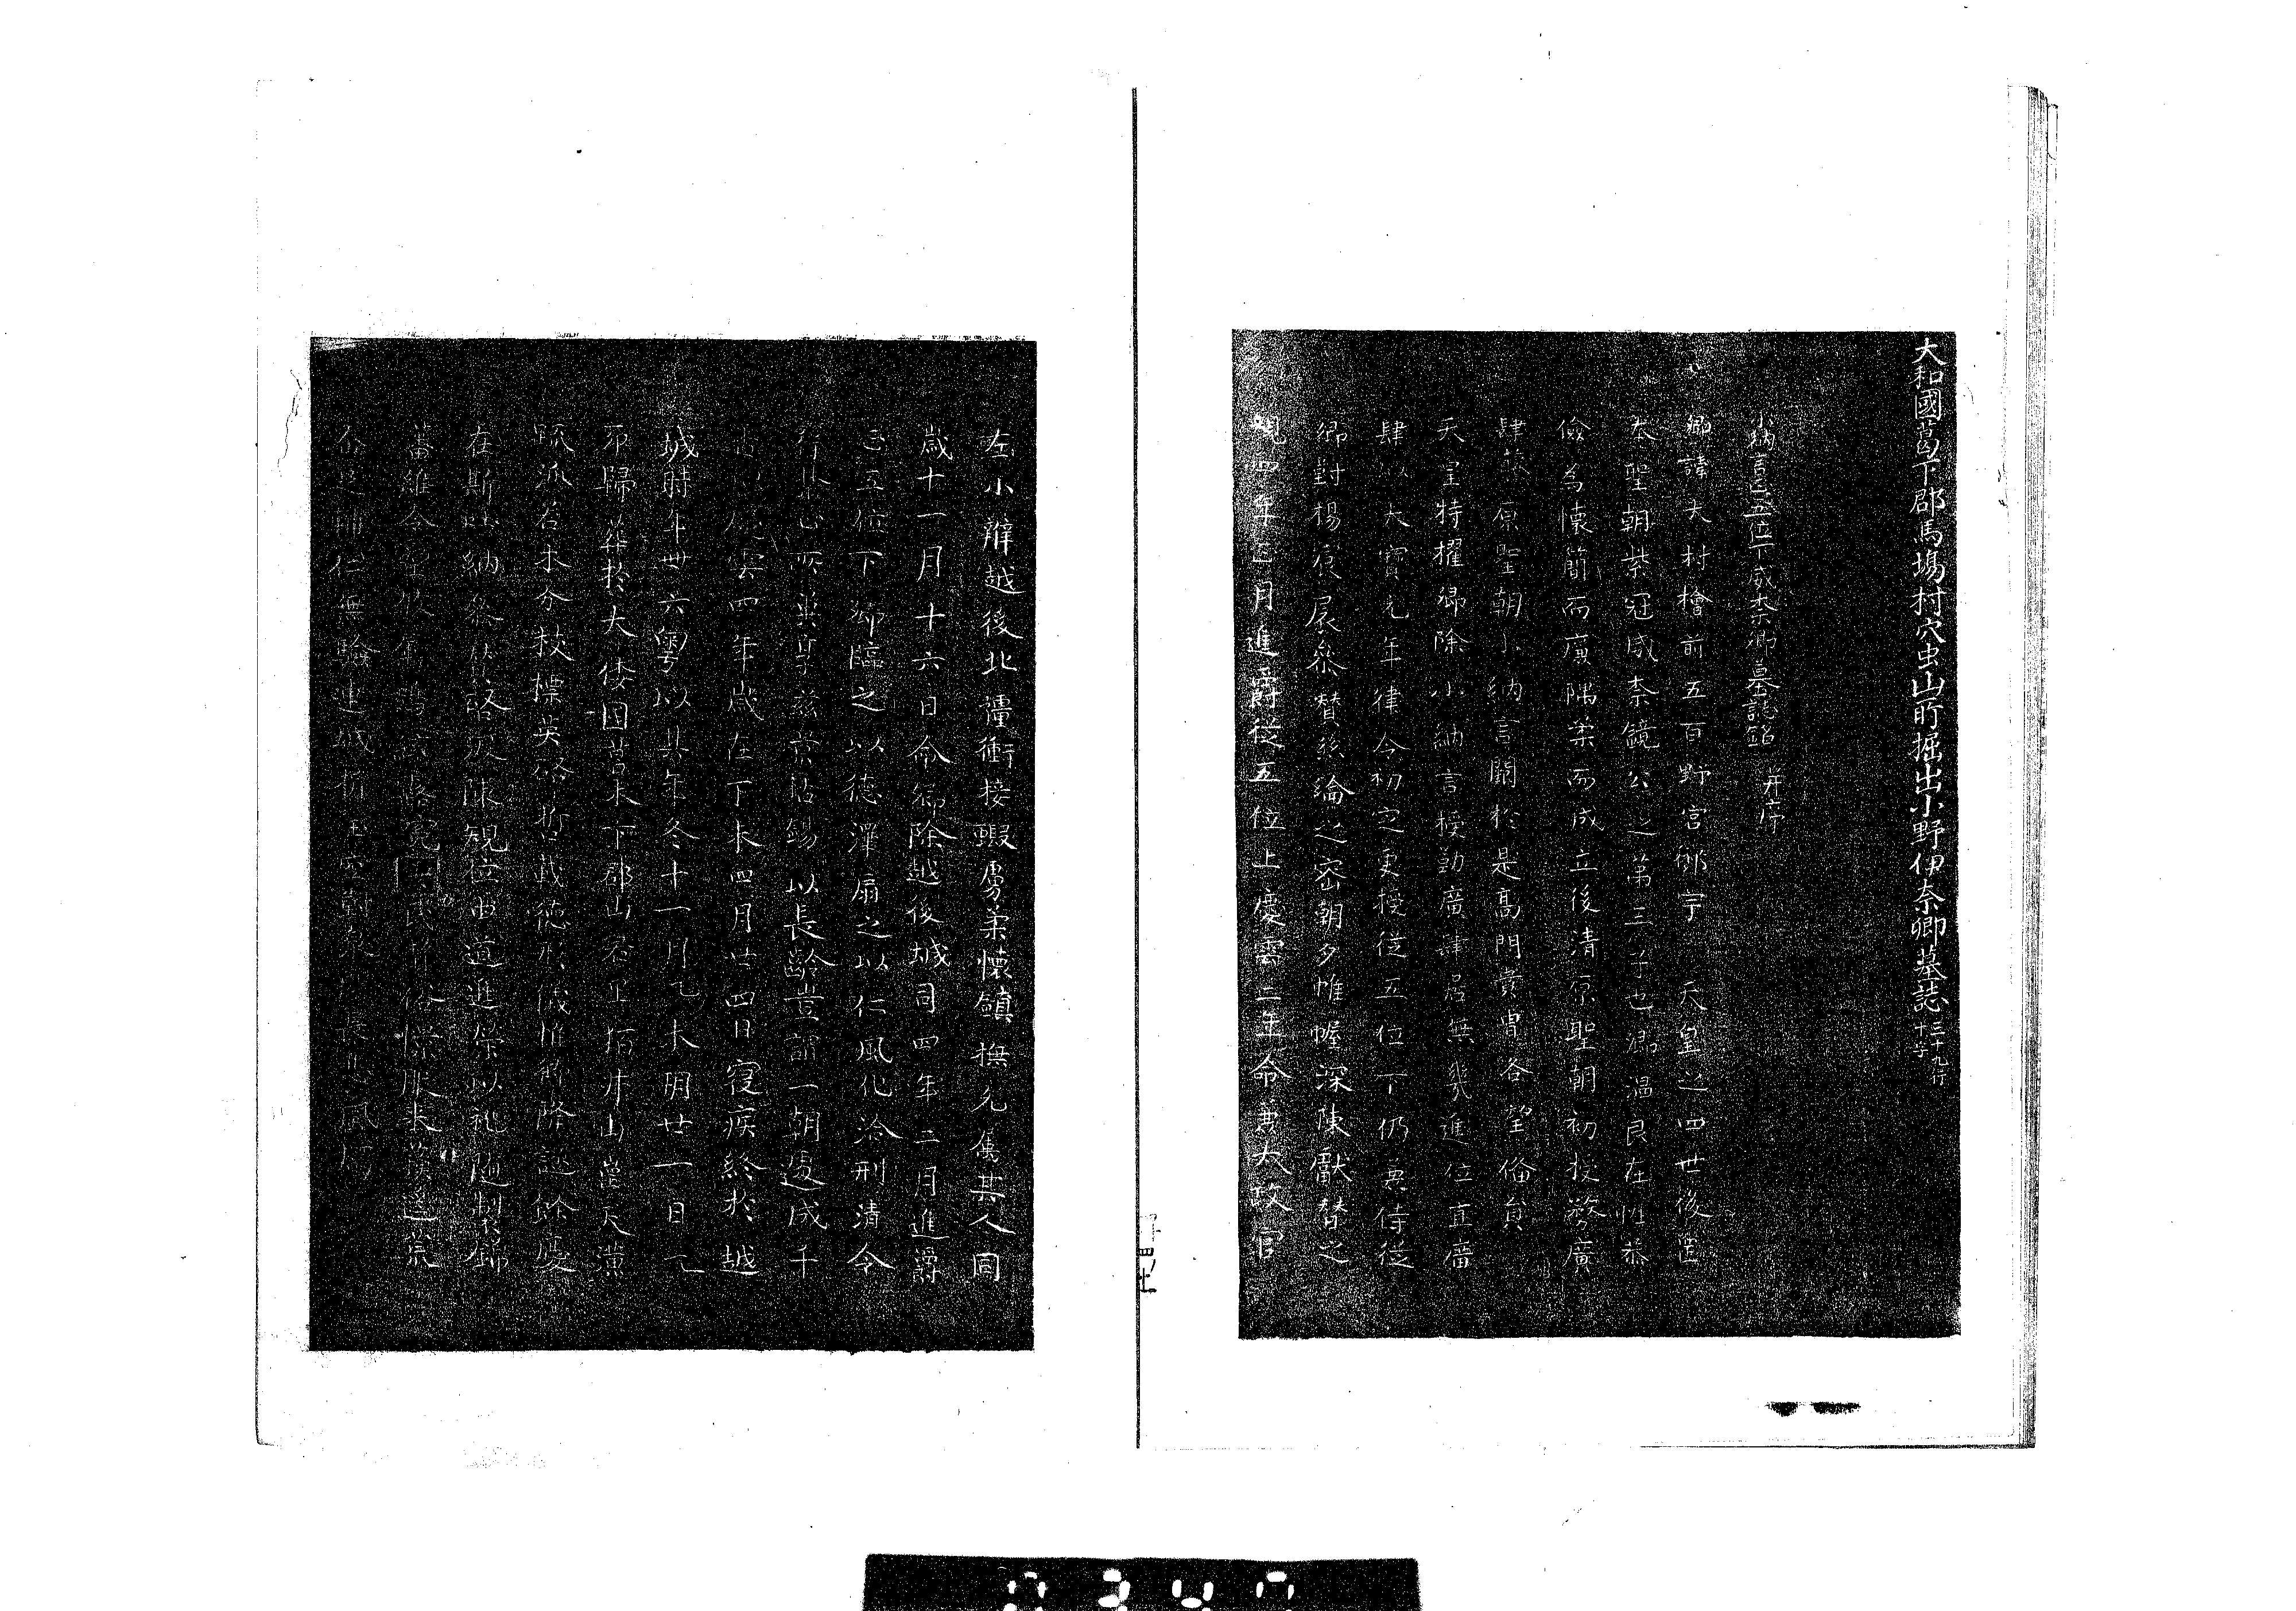 大和國葛下郡馬場村穴虫山所掘出小野伊奈卿墓誌 三十九行十字
小納言正五位下威奈卿墓誌銘 并序
卿諱大村檜前五百野宮御宇 天皇之四世後岡
本聖朝紫冠威奈鏡公之第三子也卿温良在性恭
儉為懐簡而廉隅柔而成立後清原聖朝初授務廣
肆藤原聖朝小納言闕於是髙門貴胄各望備員
天皇特擢卿除小納言授勤廣肆居無幾進位直廣
肆以大寶元年律令初定更授従五位下仍兼侍従
卿對揚扆展參賛絲綸之密朝夕帷幄深陳獻替之
規四年正月進爵従五位上慶雲二年命兼太政官
左小辨越後北疆衝接蝦虜柔懐鎮撫允属其人同
歳十一月十六日命卿除越後城司四年二月進爵
正五位下卿臨之以德澤扇之以仁風化洽刑清令
行禁止所冀享茲景祜錫以長齡豈謂一朝遽成千
古以慶雲四年歳在丁未四月廿四日寝疾終於越
城時年卌六粤以其年冬十一月乙未朔廿一日乙
卯歸葬於大倭國葛木下郡山君里狛井山崗天潢
疏派若木分枝標英啓哲載德形儀惟卿降誕餘慶
在斯吐納參賛啓沃陳規位由道進榮以礼随製錦
蕃維令望攸属鳴絃露冕 民 俗懐服来蘇遥荒
輔仁無驗連城折 空對泉 長悲風